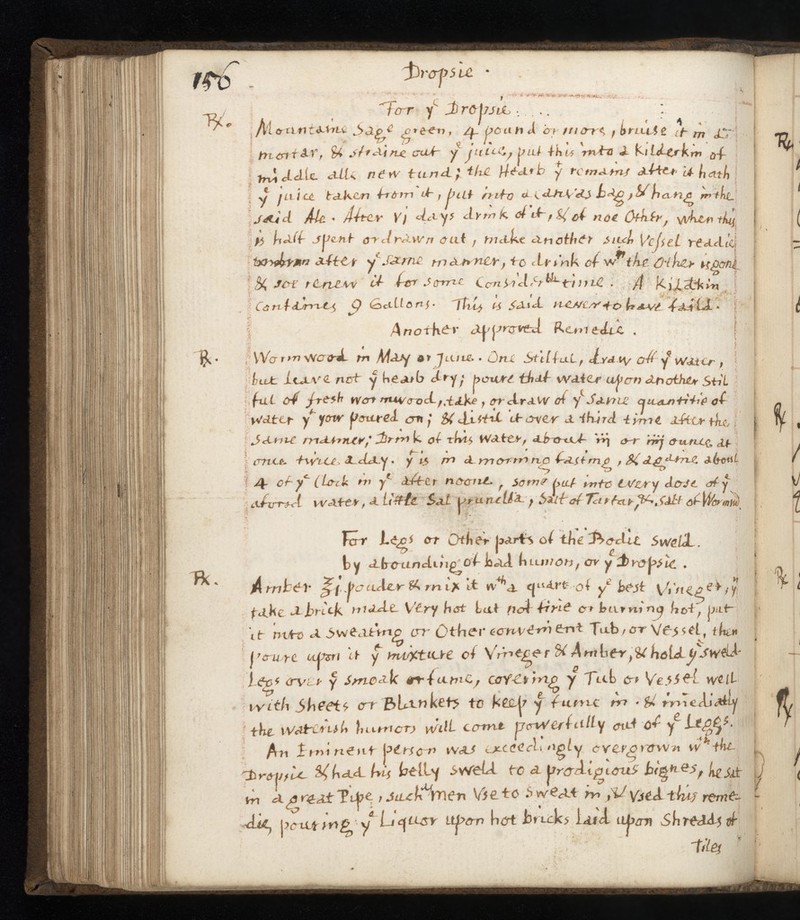 156
Dropsie
For yᵉ Dropsie.
℞. Mountaine Sage green, 4 pound or more, bruise it in a
mortar, & straine out yᵉ juice, put this into a Kilderkin of
middle alle new tund; the Hearb yᵗ remains after it hath
yᵉ juice taken from it, put into a canvas bag, & hang in the
said Ale. After vj days drink of it, & of noe Other, when this
is half spent or drawn out, make another such Vessel readie
after yᵉ same manner, to drink of wⁿ the Other is gone
& soe renew it for some Considerᵇˡᵉ time. A Kildkin
Containes 9 Gallons. This is said never to have faild.
Another approved Remedie.
℞. Wormwood in May or June. One Stilful, draw off yᵉ water,
but leave not yᵉ hearb dry; poure that water upon another Stil
ful of fresh wormwood, take, or draw of yᵉ Same quantitie of
water yᵗ yow poured on; & distil it over a third time after the
same manner; Drink of this water, about iij or iiij ounce at
once twice a day. yᵗ is in a morning fasting, & againe about
4 of yᵉ Clock in yᵉ after noone, some put into every dose of yᵉ
aforsd water, a little Sal prunella, Salt of Tartar, &, Salt of Wormwd.
For Legs or Other parts of the Bodie sweld.
by abounding of bad humors, or yᵉ Dropsie.
℞. Amber ℥j. pouder & mix it wᵗʰ a quart of yᵉ best Vineger, yⁿ
take a brick made Very hot but not firie or burning hot, put
it into a Sweating or Other convenient Tub, or Vessel, then
poure upon it yᵉ mixture of Vineger & Amber, & hold yᵉ sweld
Legs over yᵉ smoak or fume, covering yᵉ Tub or Vessel well
with Sheets or Blankets to keep yᵉ fume in. & imediatly
the waterish humors will come powerfully out of yᵉ Leggs.
An Eminent person was exceedingly overgrown wᵗʰ the
Dropsie & had his belly sweld to a prodigious bignes, he sat
in a great Pipe, such men Vse to Sweat in, & Vsed this reme-
die, pouring yᵉ Liquor upon hot bricks laid upon Shreads of
Tiles
℞
℞
℞
℞